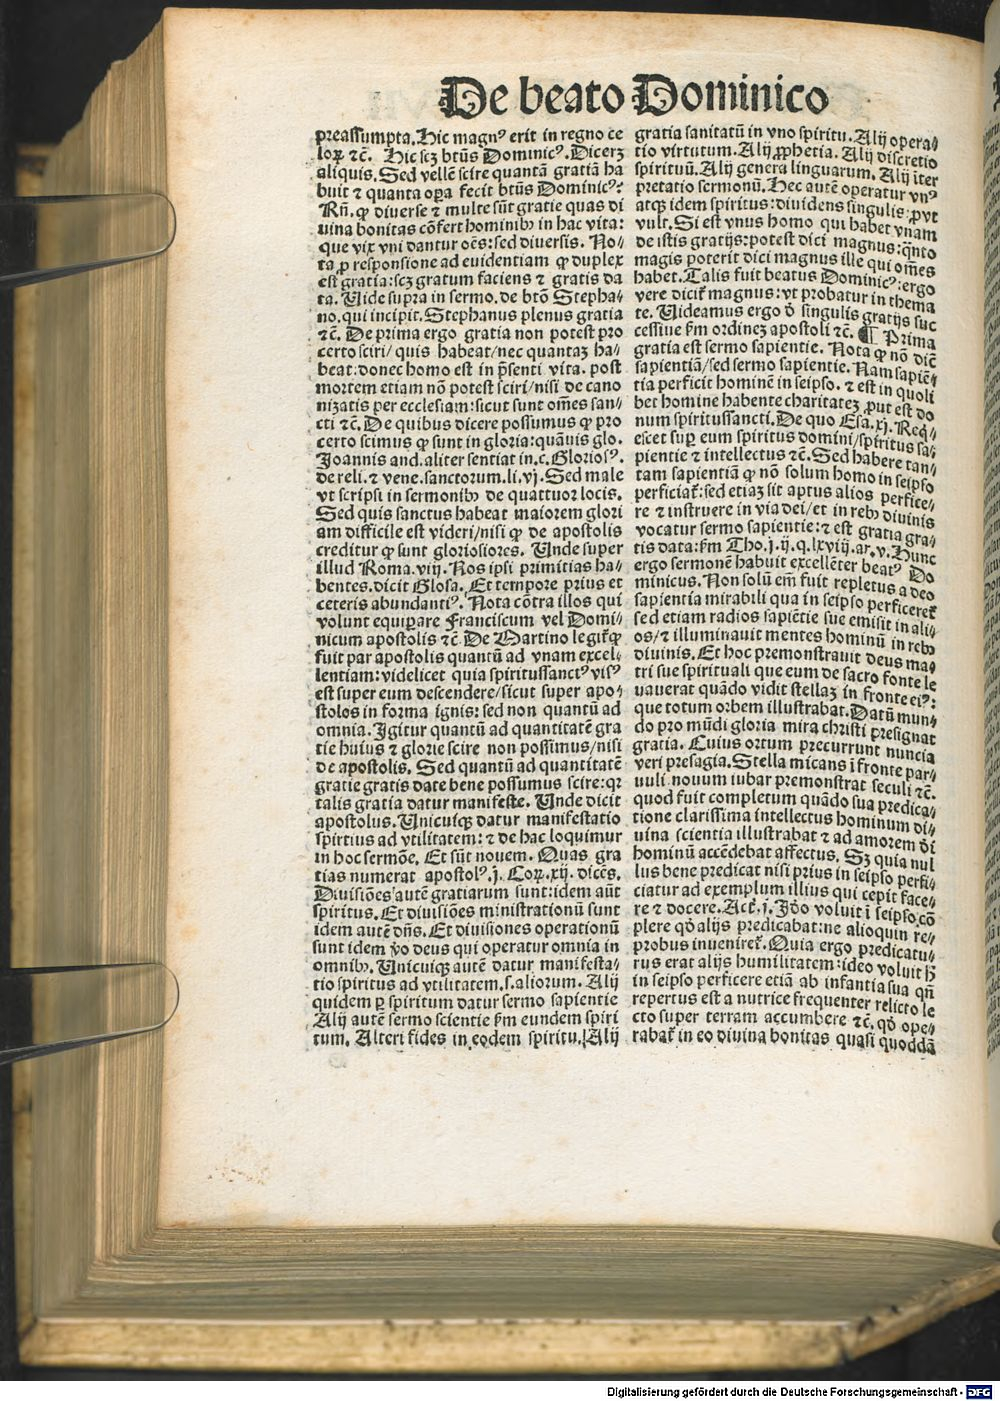 De beato Dominico
preassumpta. Hic magnꝰ erit in regno ce
loꝝ ⁊c̃. Hic scꝫ bt̃us Dominicꝰ. Dicerꝫ
aliquis. Sed vellẽ scire quantã gratiã ha
buit ⁊ quanta oꝑa fecit bt̃us Dominicꝰ:
Rñ. ꝙ diuerse ⁊ multe sũt gratie quas di
uina bonitas cõfert hominibꝰ in hac vita:
que vix vni dantur oẽs: sed diuersis. No⸗
ta ꝓ responsione ad euidentiam ꝙ duplex
est gratia: scꝫ gratum faciens ⁊ gratis da
ta. Uide supra in sermo. de btõ Stepha⸗
no. qui incipit. Stephanus plenus gratia
⁊c̃. De prima ergo gratia non potest pro
certo sciri/ quis habeat/ nec quantaꝫ ha⸗
beat: donec homo est in p̃senti vita. post
mortem etiam nõ potest sciri/ nisi de cano
nizatis per ecclesiam: sicut sunt om̃es san⸗
cti ⁊c̃. De quibus dicere possumus ꝙ pro
certo scimus ꝙ sunt in gloria: quãuis glo.
Joannis and. aliter sentiat in. c. Gloriosꝰ.
de reli. ⁊ vene. sanctorum. li. vj. Sed male
vt scripsi in sermonibꝰ de quattuor locis.
Sed quis sanctus habeat maiorem glori
am difficile est videri/ nisi ꝙ de apostolis
creditur ꝙ sunt gloriosiores. Unde super
illud Roma. viij. Nos ipsi primitias ha⸗
bentes. dicit Glosa. Et tempore prius et
ceteris abundantiꝰ. Nota cõtra illos qui
volunt equiꝑare Franciscum vel Domi⸗
nicum apostolis ⁊c̃. De Martino legit᷑ ꝙ
fuit par apostolis quantũ ad vnam excel⸗
lentiam: videlicet quia spiritussanctꝰ visꝰ
est super eum descendere/ sicut super apo⸗
stolos in forma ignis: sed non quantũ ad
omnia. Igitur quantũ ad quantitatẽ gra
tie huius ⁊ glorie scire non possimus/ nisi
de apostolis. Sed quantũ ad quantitatẽ
gratie gratis date bene possumus scire: qꝛ
talis gratia datur manifeste. Unde dicit
apostolus. Unicuiqꝫ datur manifestatio
spiritus ad vtilitatem: ⁊ de hac loquimur
in hoc sermõe. Et sũt nouem. Quas gra
tias numerat apostolꝰ. j. Coꝝ. xij. dicẽs.
Diuisiões autẽ gratiarum sunt: idem aũt
spiritus. Et diuisiões ministrationũ sunt
idem autẽ dñs. Et diuisiones operationũ
sunt idem ṽo deus qui operatur omnia in
omnibꝰ. Unicuiqꝫ autẽ datur manifesta⸗
tio spiritus ad vtilitatem. s. aliorum. Alij
quidem ꝑ spiritum datur sermo sapientie
Alij autẽ sermo scientie ẝm eundem spiri
tum. Alteri fides in eodem spiritu. Alij
gratia sanitatũ in vno spiritu. Alij opera⸗
tio virtutum. Alij ꝓphetia. Alij discretio
spirituũ. Alij genera linguarum. Alij ĩter
pretatio sermonũ. Hec autẽ operatur vnꝰ
atqꝫ idem spiritus: diuidens singulis ꝓvt
vult. Si est vnus homo qui habet vnam
de istis gratijs: potest dici magnus: q̃nto
magis poterit dici magnus ille qui om̃es
habet. Talis fuit beatus Dominicꝰ: ergo
vere dicit᷑ magnus: vt probatur in thema
te. Uideamus ergo d̕ singulis gratijs suc
cessiue ẝm ordineꝫ apostoli ⁊c̃. ¶ Prima
gratia est sermo sapientie. Nota ꝙ nõ dic̃
sapientiã/ sed sermo sapientie. Nam sapiẽ⸗
tia perficit hominẽ in seipso. ⁊ est in quoli
bet homine habente charitateꝫ ꝓut est do
num spiritussancti. De quo Esa. xj. Req⸗
escet suꝑ eum spiritus domini/ spiritus sa⸗
pientie ⁊ intellectus ⁊c̃. Sed habere tan⸗
tam sapientiã ꝙ nõ solum homo in seipso
perficiat᷑: sed etiaꝫ sit aptus alios perfice⸗
re ⁊ instruere in via dei/ et in rebꝰ diuinis
vocatur sermo sapientie: ⁊ est gratia gra⸗
tis data: ẝm Tho. j. ij. q. lxviij. ar. v. Hunc
ergo sermonẽ habuit excellẽter beatꝰ Do
minicus. Non solũ em̃ fuit repletus a deo
sapientia mirabili qua in seipso perficeret᷑
sed etiam radios sapiẽtie sue emisit in ali⸗
os/ ⁊ illuminauit mentes hominũ in rebꝰ
diuinis. Et hoc premonstrauit deus ma⸗
tri sue spirituali que eum de sacro fonte le
uauerat quãdo vidit stellaꝫ in fronte eiꝰ:
que totum orbem illustrabat. Datũ mun⸗
do pro mũdi gloria mira christi presignat
gratia. Cuius ortum precurrunt nuncia
veri presagia. Stella micans ĩ fronte par⸗
uuli nouum iubar premonstrat seculi ⁊c̃.
quod fuit completum quãdo sua predica⸗
tione clarissima intellectus hominum di⸗
uina scientia illustrabat ⁊ ad amorem d̕i
hominũ accẽdebat affectus. Sꝫ quia nul
lus bene predicat nisi prius in seipso perfi⸗
ciatur ad exemplum illius qui cepit face⸗
re ⁊ docere. Act᷑. j. Id̕o voluit ĩ seipso cõ
plere qd̕ alijs predicabat: ne alioquin re⸗
probus inueniret᷑. Quia ergo predicatu⸗
rus erat alijs humilitatem: ideo voluit h̃
in seipso perficere etiã ab infantia sua qñ
repertus est a nutrice frequenter relicto le
cto super terram accumbere ⁊c̃. qd̕ ope⸗
rabat᷑ in eo diuina bonitas quasi quoddã
Digitalisierung gefördert durch die Deutsche Forschungsgemeinschaft - DFG